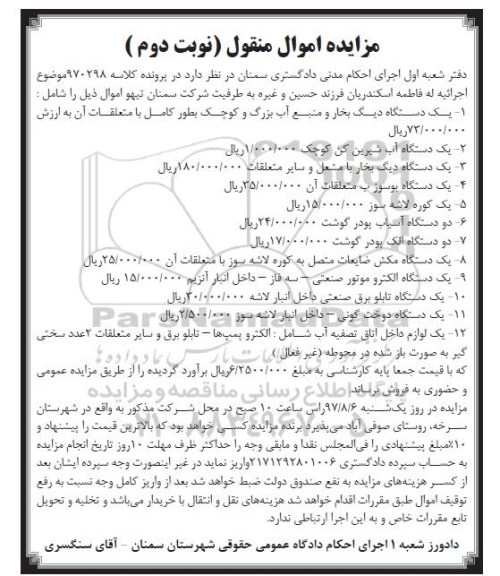 مزایده اموال منقول (نوبت دوم )
دفتر شعبه اول اجرای احکام مدنی دادگستری سمنان در نظر دارد در پرونده کلاسه ۹۷۰۲۹۸موضوع
اجرائیه له فاطمه اسکندریان فرزند حسین و غیره به طرفیت شرکت سمنان تیهو اموال ذیل را شامل :
۱- یک دستگاه دیگ بخار و منبع آب بزرگ و کوچک بطور کامل با متعلقات آن به ارزش
۷۳/۰۰۰/۰۰۰ریال
۲- یک دستگاه آب شیرین کن کوچک ۱/۰۰۰/۰۰۰ریال
۳- یک دستگاه دیگ بخار با مشعل و سایر متعلقات ۱۸۰/۰۰۰/۰۰۰ریال
۴- یک دستگاه بوسوز ب متعلقات آن ۳۵/۰۰۰/۰۰۰ریال
۵- یک کوره لاشه سوز ۱۵/۰۰۰/۰۰۰ریال
۶- دو دستگاه آسیاب پودر گوشت ۲۴/۰۰۰/۰۰۰ریال
۷- دو دستگاه الک پودر گوشت ۱۷/۰۰۰/۰۰۰ریال
۸- یک دستگاه مکش ضایعات متصل به کوره لاشه سوز با متعلقات آن ۲۵/۰۰۰/۰۰۰ریال
۹- یک دستگاه الکترو موتور صنعتی – سه فاز – داخل انبار آنزیم ۱۵/۰۰۰/۰۰۰ ریال
۱۰- یک دستگاه تابلو برق صنعتی داخل انبار لاشه ۳۰/۰۰۰/۰۰۰ریال
۱۱- یک دستگاه دوخت گونی – داخل انبار لاشه سوز ۲/۵۰۰/۰۰۰ریال
۱۲- یک لوازم داخل اتاق تصفیه آب شامل : الکترو پمپ‌ها – تابلو برق و سایر متعلقات ۲عدد سختی
گیر به صورت باز شده در محوطه (غیر فعال )
که با قیمت جمعا پایه کارشناسی به مبلغ ۶/۲۵۰۰/۰۰۰ریال برآورد گردیده را از طریق مزایده عمومی
و حضوری به فروش برساند.
مزایده در روز یک‌شنبه ۹۷/۸/۶راس ساعت ۱۰ صبح در محل شرکت مذکور به واقع در شهرستان
سرخه، روستای صوفی آباد می‌پذیرد برنده مزایده کسی خواهد بود که بالاترین قیمت را پیشنهاد و
۱۰٪مبلغ پیشنهادی را فی‌المجلس نقدا و مابقی وجه را حداکثر ظرف مهلت ۱۰روز تاریخ انجام مزایده
به حساب سپرده دادگستری ۲۱۷۱۲۹۲۸۰۱۰۰۶واریز نماید در غیر اینصورت وجه سپرده ایشان بعد
از کسر هزینه‌های مزایده به نفع صندوق دولت ضبط خواهد شد بعد از واریز کامل وجه نسبت به رفع
توقیف اموال طبق مقررات اقدام خواهد شد هزینه‌های نقل و انتقال با خریدار می‌باشد و تخلیه و تحویل
تابع مقررات خاص و به این اجرا ارتباطی ندارد.
دادورز شعبه ۱ اجرای احکام دادگاه عمومی حقوقی شهرستان سمنان – آقای سنگسری